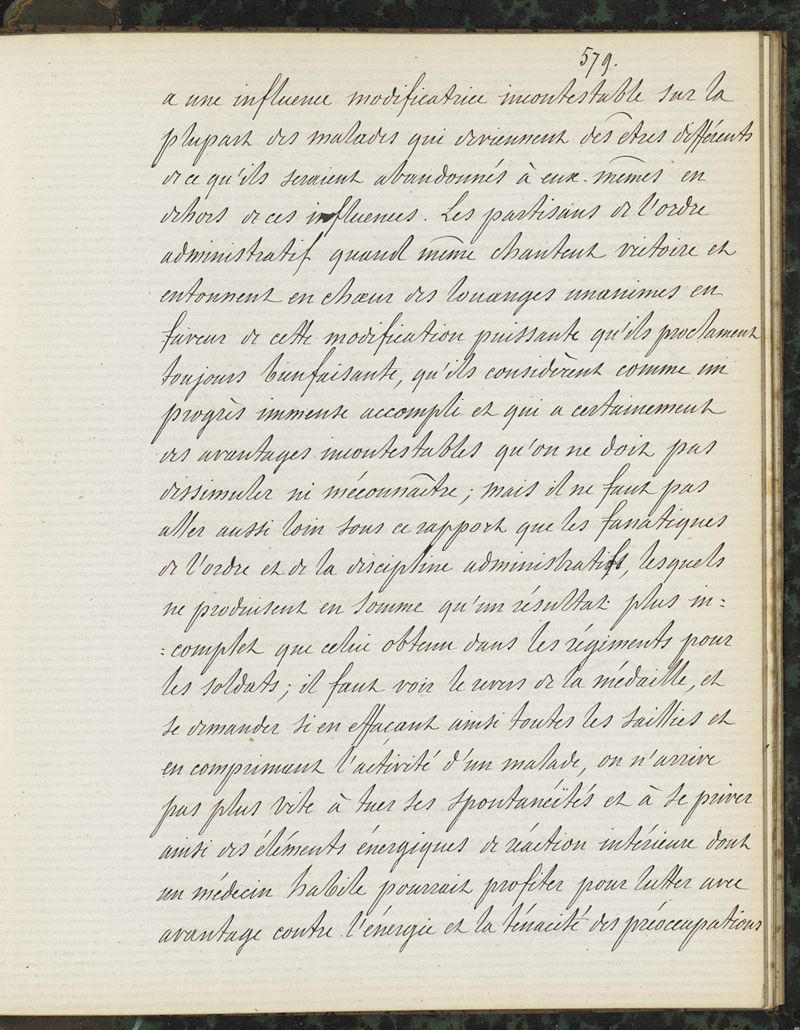 579.
a une influence modificatrice incontestable sur la
plupart des malades qui deviennent des êtres différents
de ce qu'ils seraient abandonnés à eux-mêmes en
dehors de ces influences. Les partisans de l'ordre
administratif quand même chantent victoire et
entonnent en chœur des louanges unanimes en
faveur de cette modification puissante qu'ils proclament
toujours bienfaisante, qu'ils considèrent comme un
progrès immense accompli et qui a certainement
des avantages incontestables qu'on ne doit pas
dissimuler ni méconnaître; mais il ne faut pas
aller aussi loin sous ce rapport que les fanatiques
de l'ordre et de la discipline administratifs, lesquels
ne produisent en somme qu'un résultat plus in=
=complet que celui obtenu dans les régiments pour
les soldats; il faut voir le revers de la médaille, et
se demander si en effaçant ainsi toutes les saillies et
en comprimant l'activité d'un malade, on n'arrive
pas plus vite à tuer ses spontanéïtés et à se priver
ainsi des éléments énergiques de réaction intérieure dont
un médecin habile pourrait profiter pour lutter avec
avantage contre l'énergie et la ténacité des préoccupations